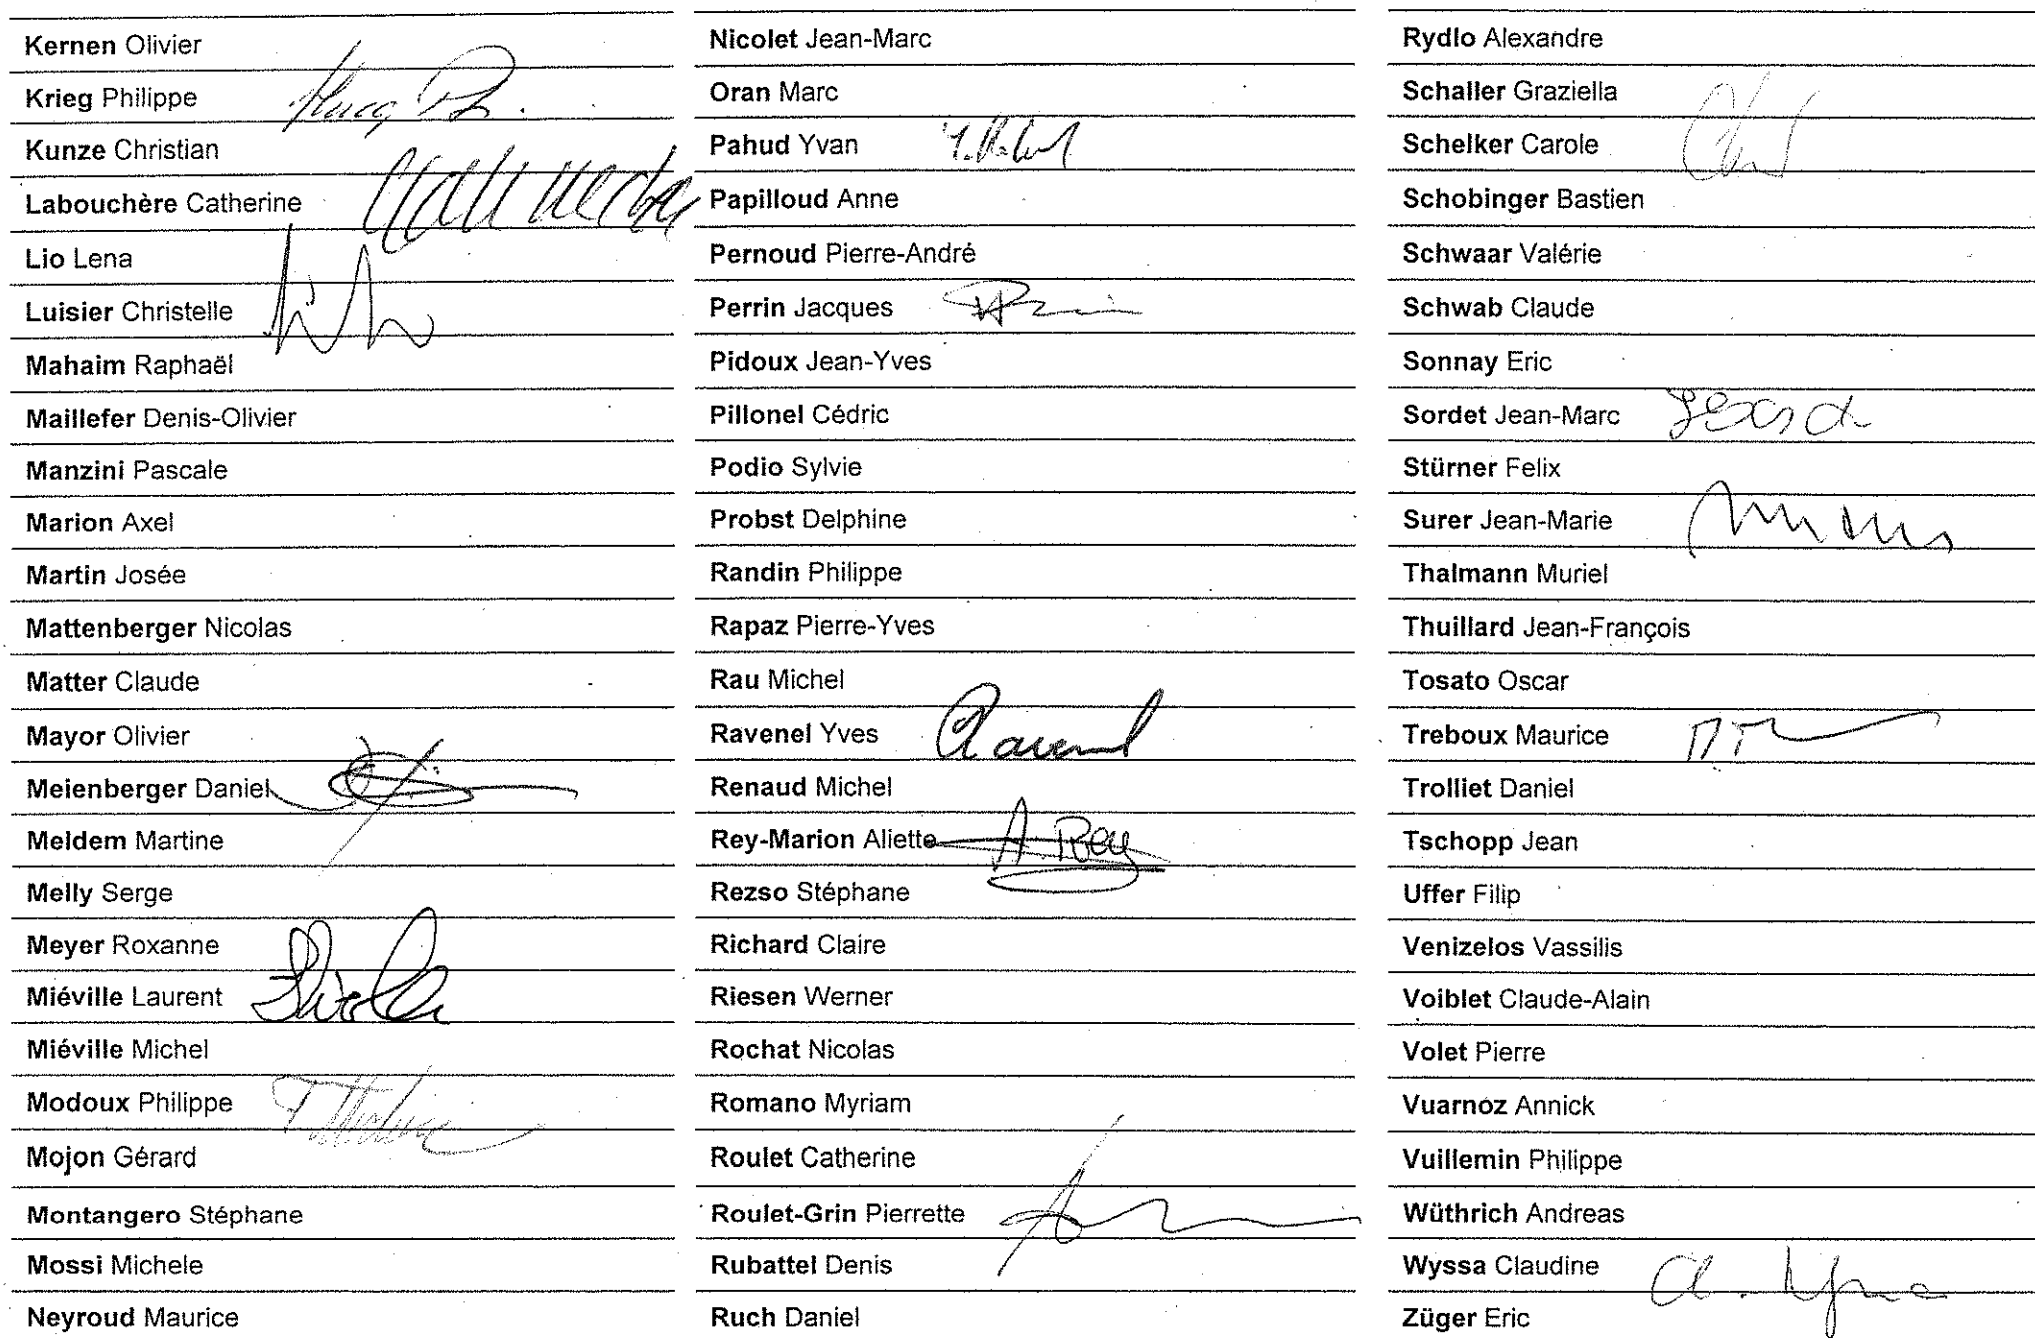 Kernen Olivier
Krieg Philippe
Kunze Christian
Labouchère Catherine
Lio Lena
Luisier Christelle
Mahaim Raphaël
Maillefer Denis-Olivier
Manzini Pascale
Marion Axel
Martin Josée
Mattenberger Nicolas
Matter Claude
Mayor Olivier
Meienberger Daniel
Meldem Martine
Melly Serge
Meyer Roxanne
Miéville Laurent
Miéville Michel
Modoux Philippe
Mojon Gérard
Montangero Stéphane
Mossi Michele
Neyroud Maurice
Nicolet Jean-Marc
Oran Marc
Pahud Yvan
Papilloud Anne
Pernoud Pierre-André
Perrin Jacques
Pidoux Jean-Yves
Pillonel Cédric
Podio Sylvie
Probst Delphine
Randin Philippe
Rapaz Pierre-Yves
Rau Michel
Ravenel Yves Ravenel
Renaud Michel
Rey-Marion Aliette A. Rey
Rezso Stéphane
Richard Claire
Riesen Werner
Rochat Nicolas
Romano Myriam
Roulet Catherine
Roulet-Grin Pierrette
Rubattel Denis
Ruch Daniel
Rydlo Alexandre
Schaller Graziella
Schelker Carole
Schobinger Bastien
Schwaar Valérie
Schwab Claude
Sonnay Eric
Sordet Jean-Marc
Stürner Felix
Surer Jean-Marie
Thalmann Muriel
Thuillard Jean-François
Tosato Oscar
Treboux Maurice
Trolliet Daniel
Tschopp Jean
Uffer Filip
Venizelos Vassilis
Voiblet Claude-Alain
Volet Pierre
Vuarnoz Annick
Vuillemin Philippe
Wüthrich Andreas
Wyssa Claudine
Züger Eric